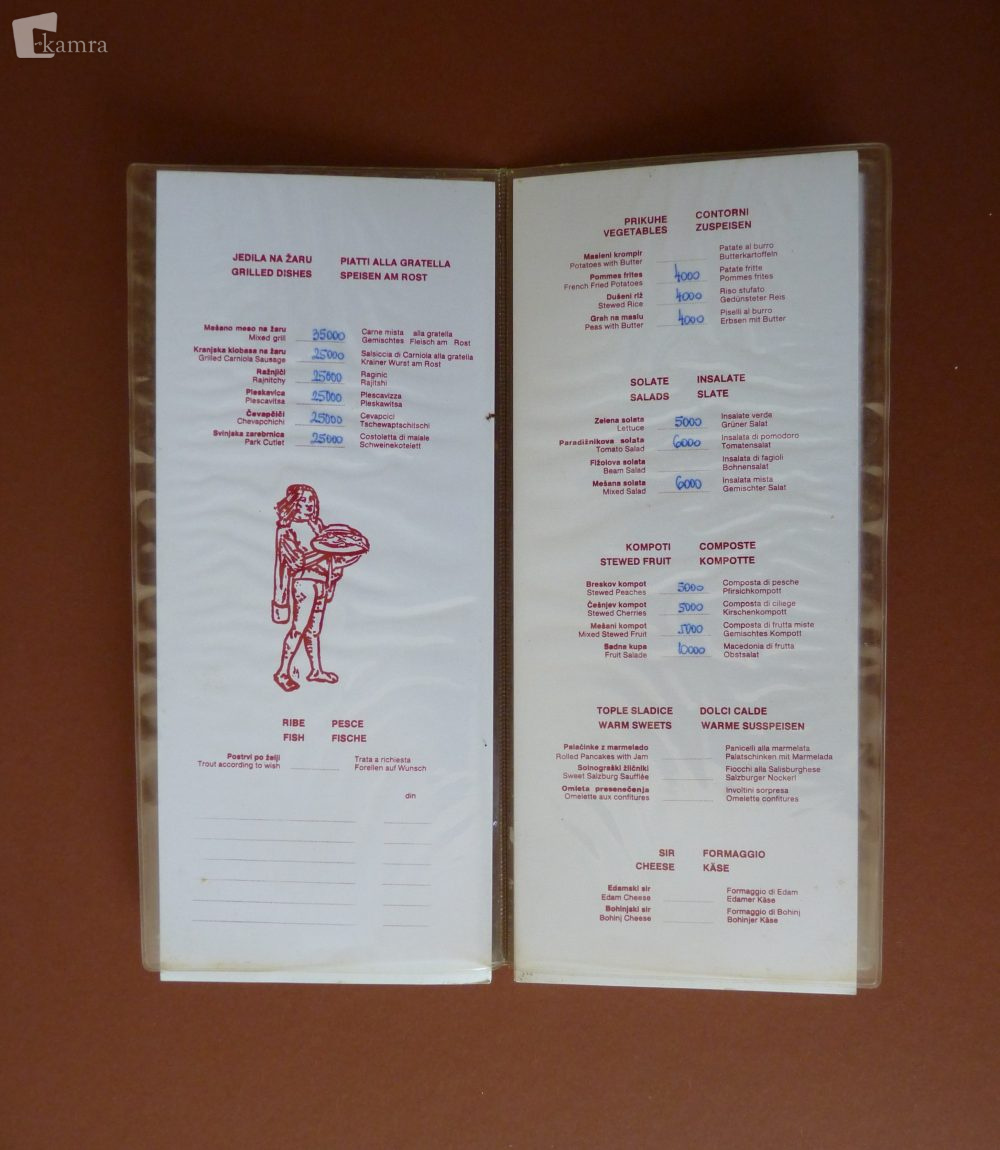 kamra
JEDILA NA ŽARU PIATTI ALLA GRATELLA
GRILLED DISHES SPEISEN AM ROST
Mešano meso na žaru 35000 Carne mista alla gratella
Mixed grill Gemischtes Fleisch am Rost
Kranjska klobasa na žaru 25000 Salsiccia di Carniola alla gratella
Grilled Carniola Sausage Krainer Wurst am Rost
Ražnjiči 25000 Raginic
Rajnitchy Rajitshi
Pleskavica 25000 Plescavizza
Plescavitsa Pleskawitsa
Čevapčiči 25000 Cevapcici
Chevapchichi Tschewaptschitschi
Svinjska zarebrnica 25000 Costoletta di maiale
Park Cutlet Schweinekotelett
RIBE PESCE
FISH FISCHE
Postrvi po želji Trata a richiesta
Trout according to wish Forellen auf Wunsch
din
PRIKUHE CONTORNI
VEGETABLES ZUSPEISEN
Masleni krompir Patate al burro
Potatoes with Butter Butterkartoffeln
Pommes frites 4000 Patate fritte
French Fried Potatoes Pommes frites
Dušeni riž 4000 Riso stufato
Stewed Rice Gedünsteter Reis
Grah na maslu 4000 Piselli al burro
Peas with Butter Erbsen mit Butter
SOLATE INSALATE
SALADS SLATE
Zelena solata 5000 Insalate verde
Lettuce Grüner Salat
Paradižnikova solata 6000 Insalata di pomodoro
Tomato Salad Tomatensalat
Fižolova solata Insalata di fagioli
Beam Salad Bohnensalat
Mešana solata 6000 Insalata mista
Mixed Salad Gemischter Salat
KOMPOTI COMPOSTE
STEWED FRUIT KOMPOTTE
Breskov kompot 5000 Composta di pesche
Stewed Peaches Pfirsichkompott
Češnjev kompot 5000 Composta di ciliege
Stewed Cherries Kirschenkompott
Mešani kompot 5000 Composta di frutta miste
Mixed Stewed Fruit Gemischtes Kompott
Sadna kupa 10000 Macedonia di frutta
Fruit Salade Obstsalat
TOPLE SLADICE DOLCI CALDE
WARM SWEETS WARME SUSSPEISEN
Palačinke z marmelado Panicelli alla marmelata
Rolled Pancakes with Jam Palatschinken mit Marmelada
Solnograški žličniki Fiocchi alla Salisburghese
Sweet Salzburg Saufflèe Salzburger Nockerl
Omleta presenečenja Involtini sorpresa
Omelette aux confitures Omelette confitures
SIR FORMAGGIO
CHEESE KÄSE
Edamski sir Formaggio di Edam
Edam Cheese Edamer Käse
Bohinjski sir Formaggio di Bohinj
Bohinj Cheese Bohinjer Käse